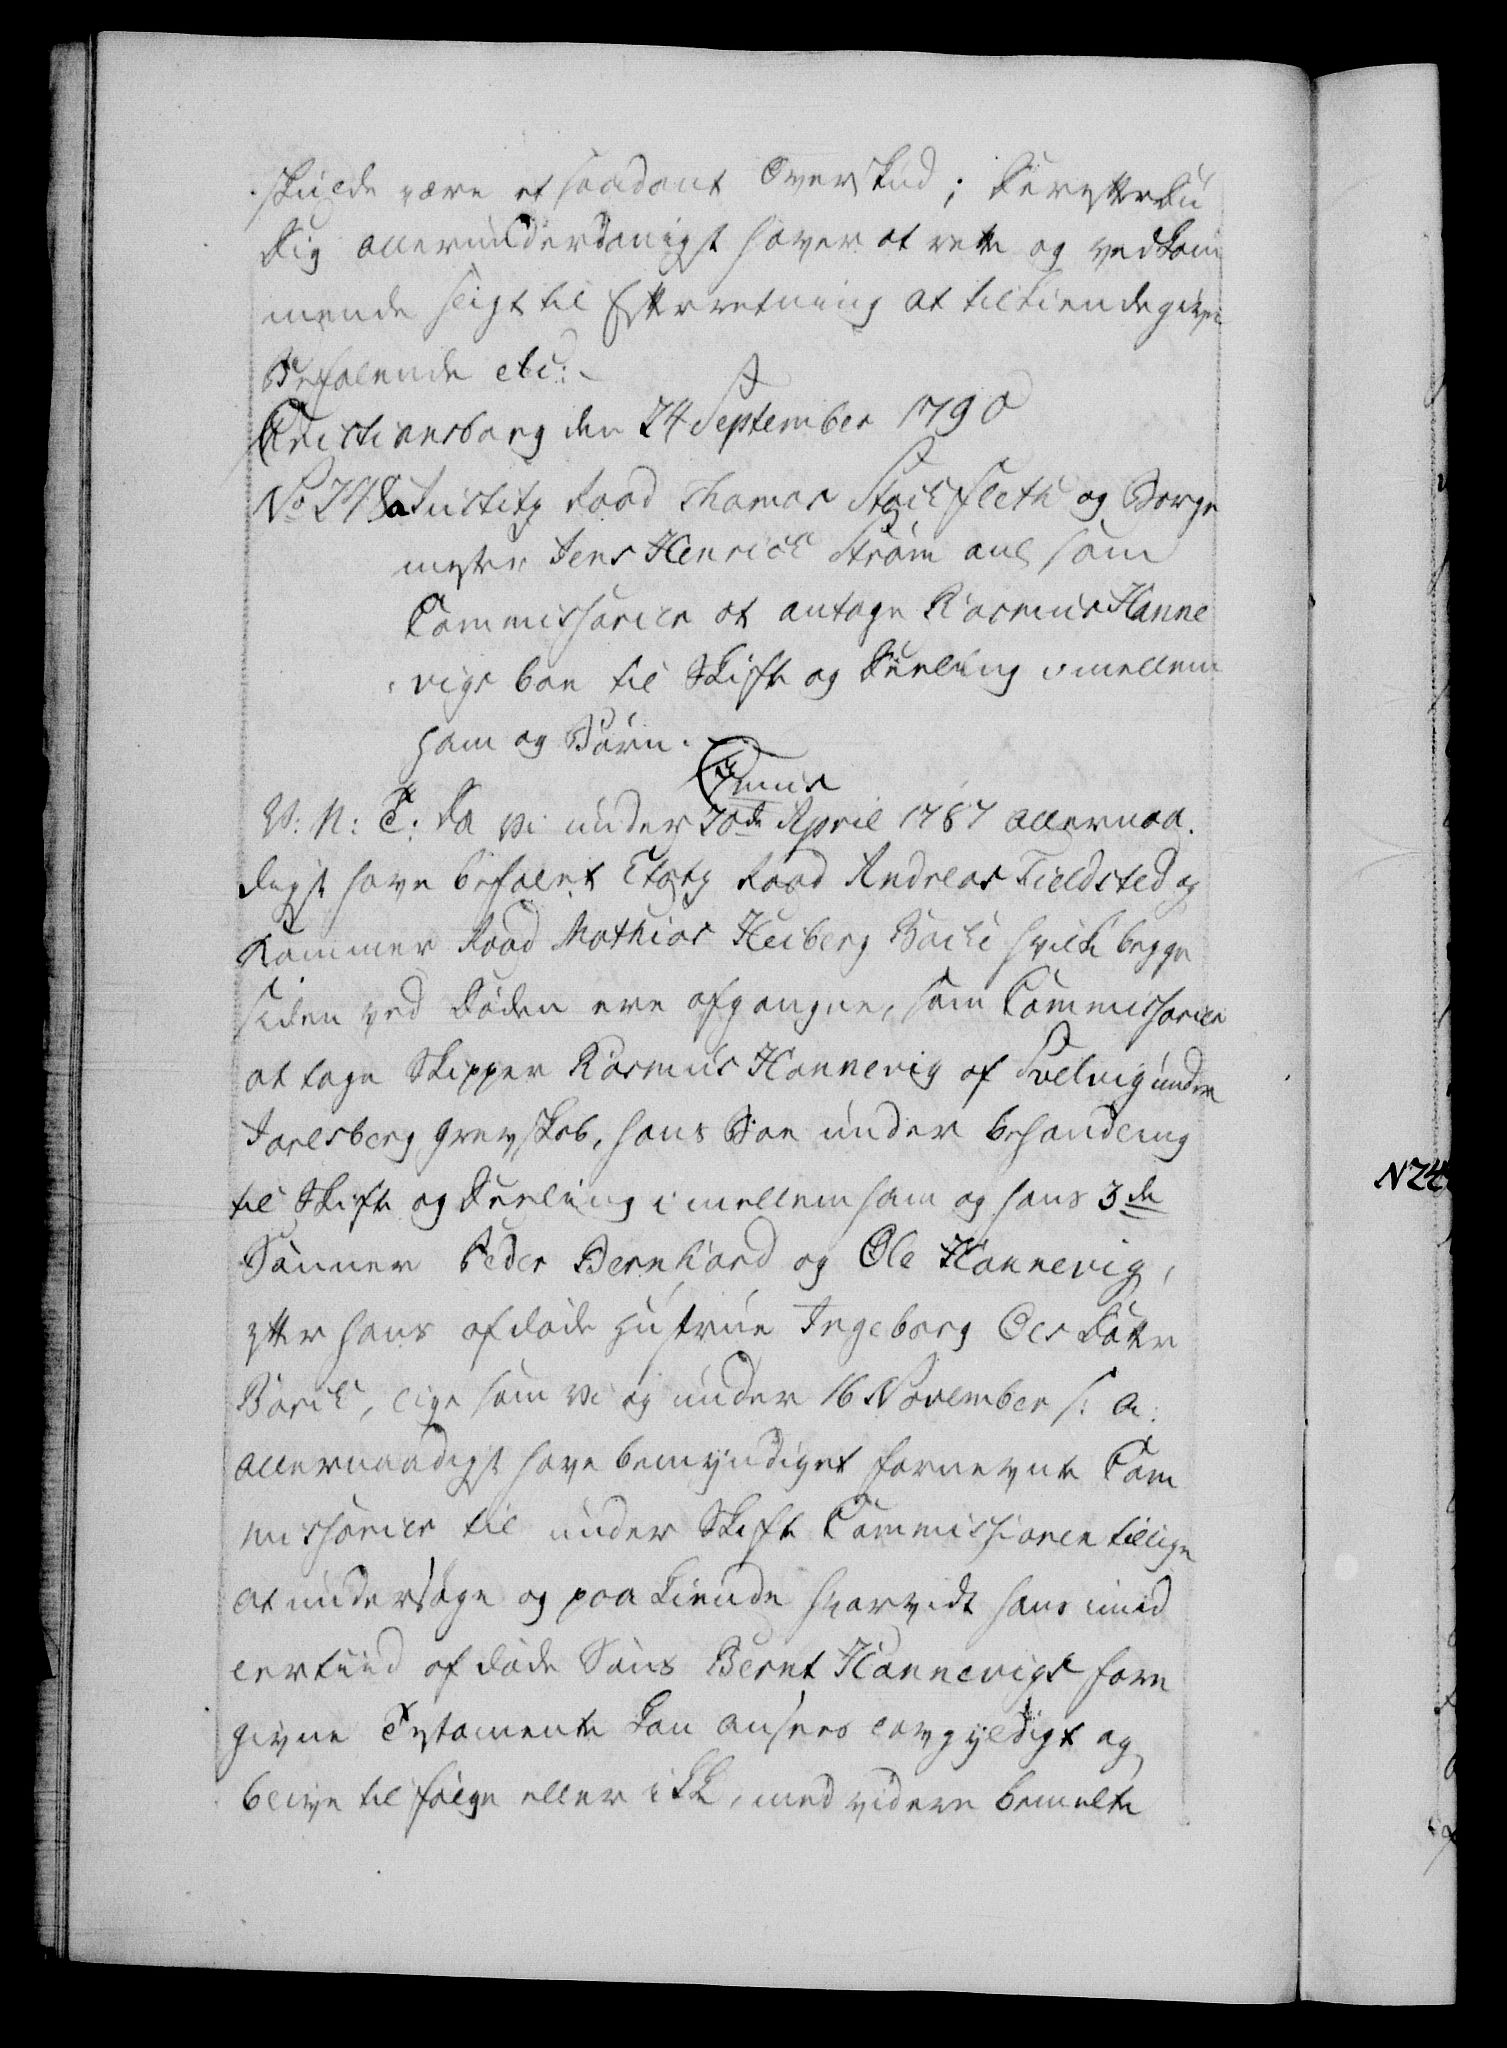 skulde være et saadant Overskud; derefter du
dig allerunderdanigst haver at rette og vedkom
mende sligt til Efterretning at tilkiendegive
Befalende etc:
Christiansborg den 24 September 1790
No 248a Justitz Raad Thomas Stockfleth og Borge
mester Jens Henrich Strøm anl som
Commissarier at antage Rasmus Hanne
vigs boe til Skifte og deeling imellem
ham og Børn.
Cancel
V: N: T: da Vi under 20de April 1787 allernaa.
digst have befalet Etatz Raad Andreas Fieldsted og
Kammer Raad Mathias Heiberg Bache hvilke begge
siden ved døden ere afgangne, som Commissarier
at tage Skipper Rasmus Hannevig af Svelvig under
Jarlsberg Grevskab, hans Boe under behandling
til Skifte og deeling imellem ham og hans 3de
Sønner Peder Bernhard og Ole Hannevig,
efter hans afdøde Hustrue Ingeborg Ols datter
lige som Vi og under 16 November s: a:
allernaadigst have bemyndiget fornevnte Com
missarier til under Skifte Commissionen tillige
at undersøge og paakiende hvorvidt hans imid
lertiid afdøde Søns Bernt Hannevigs fore
givne Testamente kan ansees lovgyldigt og
blive til følge eller ikke, med videre bemelte
N 24